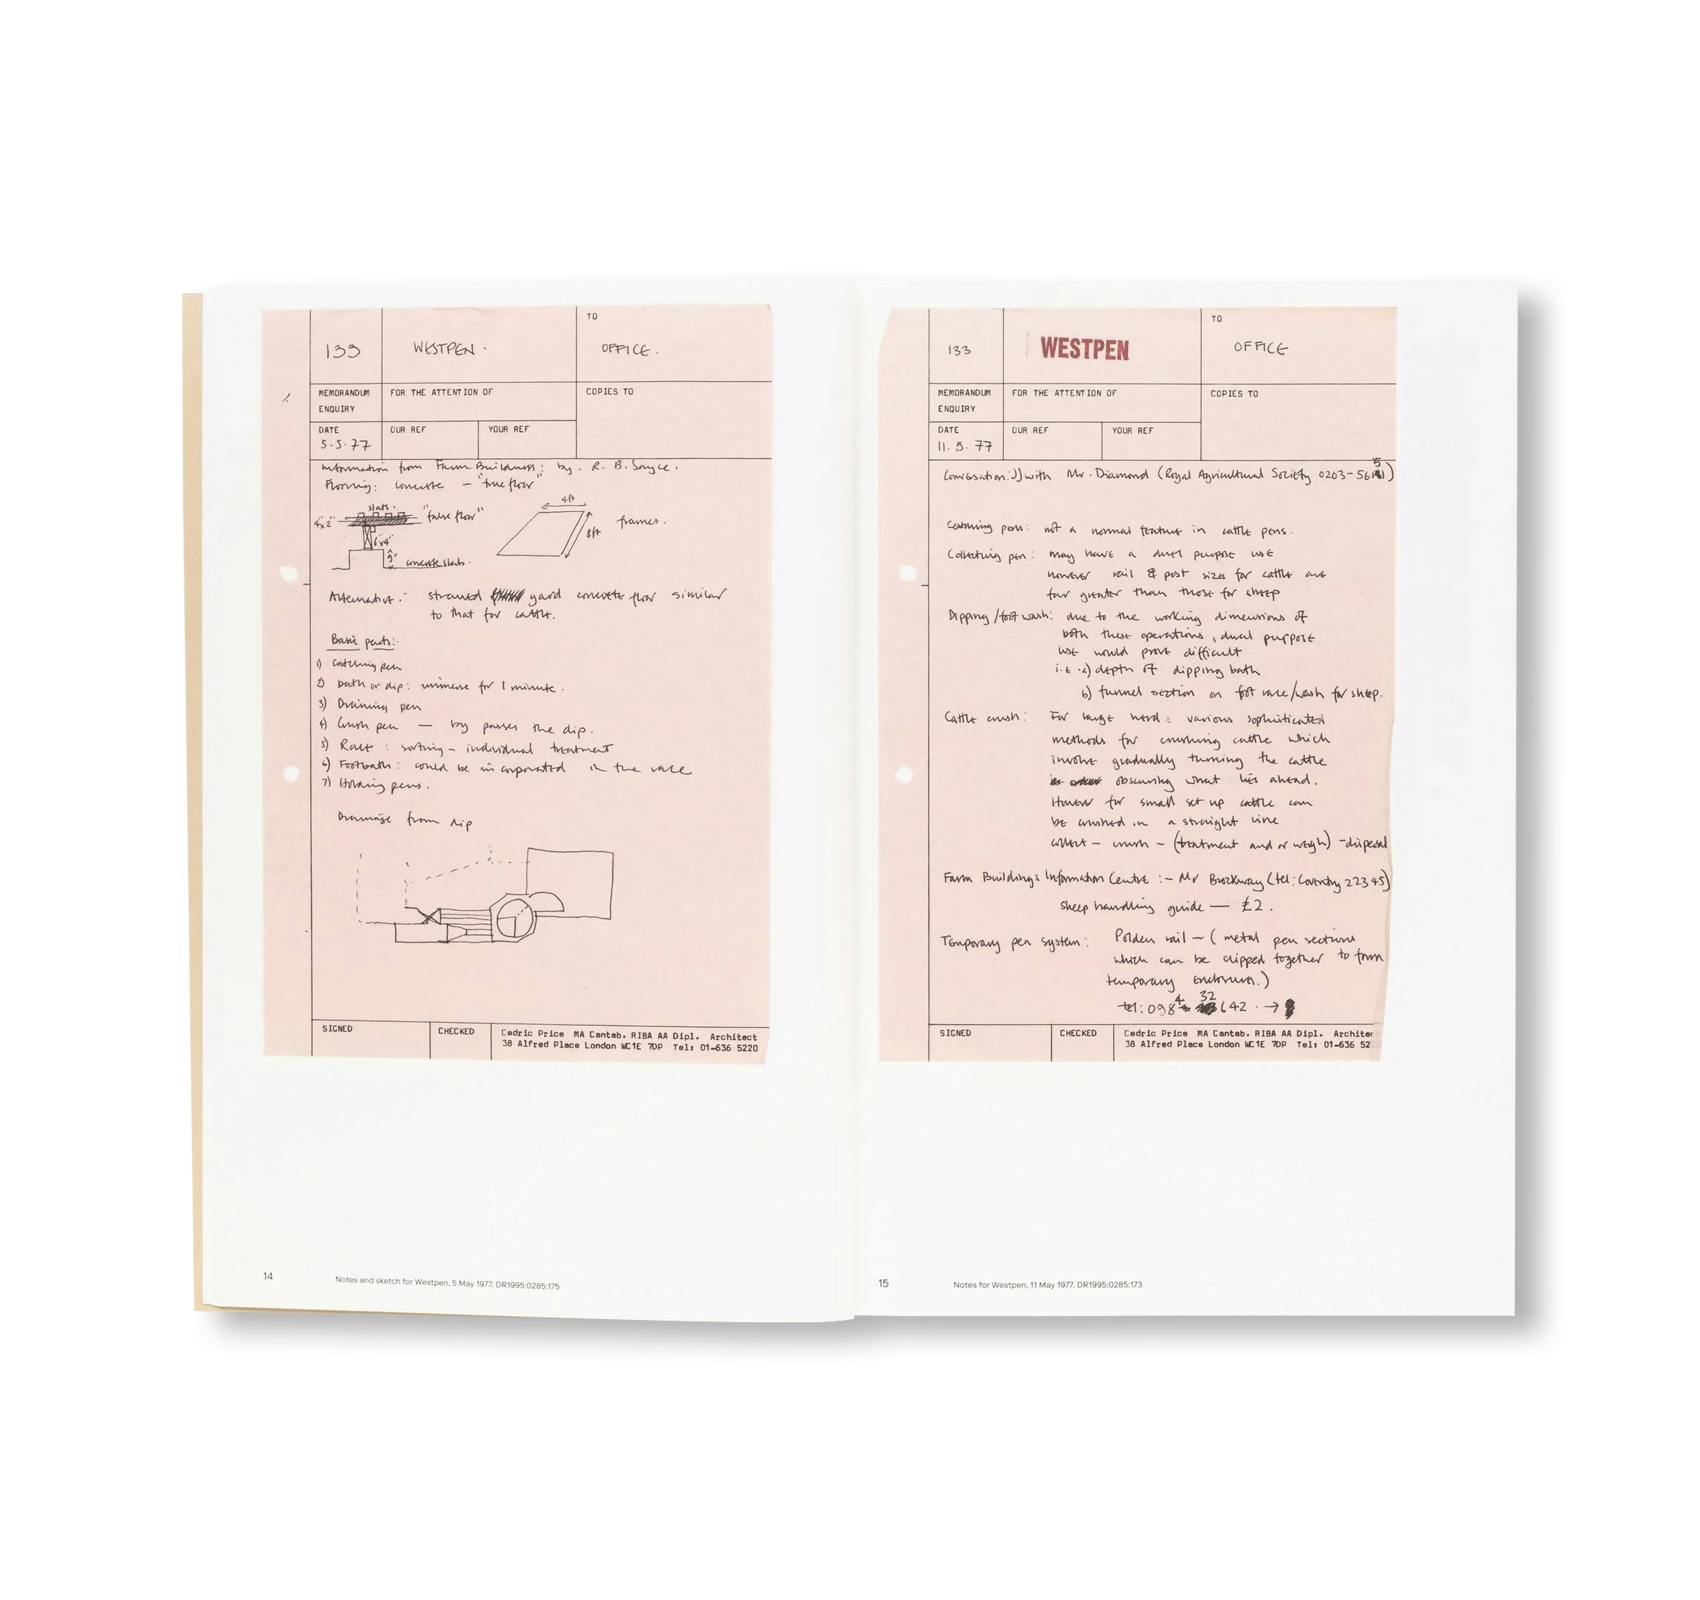 TO
133
WESTPEN.
OFFICE.
MEMORANDUM
ENQUIRY
FOR THE ATTENTION OF
COPIES TO
DATE
5.5.77
OUR REF
YOUR REF
Information from Farm Buildings: by. R. B. Sayce.
Flooring: concrete – "true floor"
slats.
4"x2"
"false floor"
6"x4"
9"
concrete slab.
4ft
8ft
frames.
Alternative: strawed yard concrete floor similar
to that for cattle.
Basic parts:
1) Catching pen
2) bath or dip: immerse for 1 minute.
3) Draining pen
4) Crush pen — by passes the dip.
5) Race: sorting – individual treatment
6) Footbath: could be incorporated in the race
7) Holding pens.
Drainage from dip
SIGNED
CHECKED
Cedric Price MA Cantab. RIBA AA Dipl. Architect
38 Alfred Place London WC1E 7DP Tel: 01-636 5220
14
Notes and sketch for Westpen, 5 May 1977. DR1995:0285:175
TO
133
WESTPEN
OFFICE
MEMORANDUM
ENQUIRY
FOR THE ATTENTION OF
COPIES TO
DATE
11.5.77
OUR REF
YOUR REF
Conversation: with Mr. Diamond (Royal Agricultural Society 0203-56
Catching pens: not a normal feature in cattle pens.
Collecting pen: may have a dual purpose use
however rail & post sizes for cattle are
far greater than those for sheep
Dipping/foot wash: due to the working dimensions of
both these operations, dual purpose
use would prove difficult
i.e. a) depth of dipping bath
b) funnel section on foot race/wash for sheep.
Cattle crush: For large herd: various sophisticated
methods for crushing cattle which
involve gradually turning the cattle
obscuring what lies ahead.
However for small set up cattle can
be crushed in a straight line
collect – crush – (treatment and or weigh) – dispersal
Farm Buildings Information Centre:– Mr Brockway (tel: Coventry 22345)
sheep handling guide — £2.
Temporary pen system: Polden rail – (metal pen sections
which can be clipped together to form
temporary enclosures.)
tel: 0984 32 642 →
SIGNED
CHECKED
Cedric Price MA Cantab. RIBA AA Dipl. Archite
38 Alfred Place London WC1E 7DP Tel: 01-636 52
15
Notes for Westpen, 11 May 1977. DR1995:0285:173